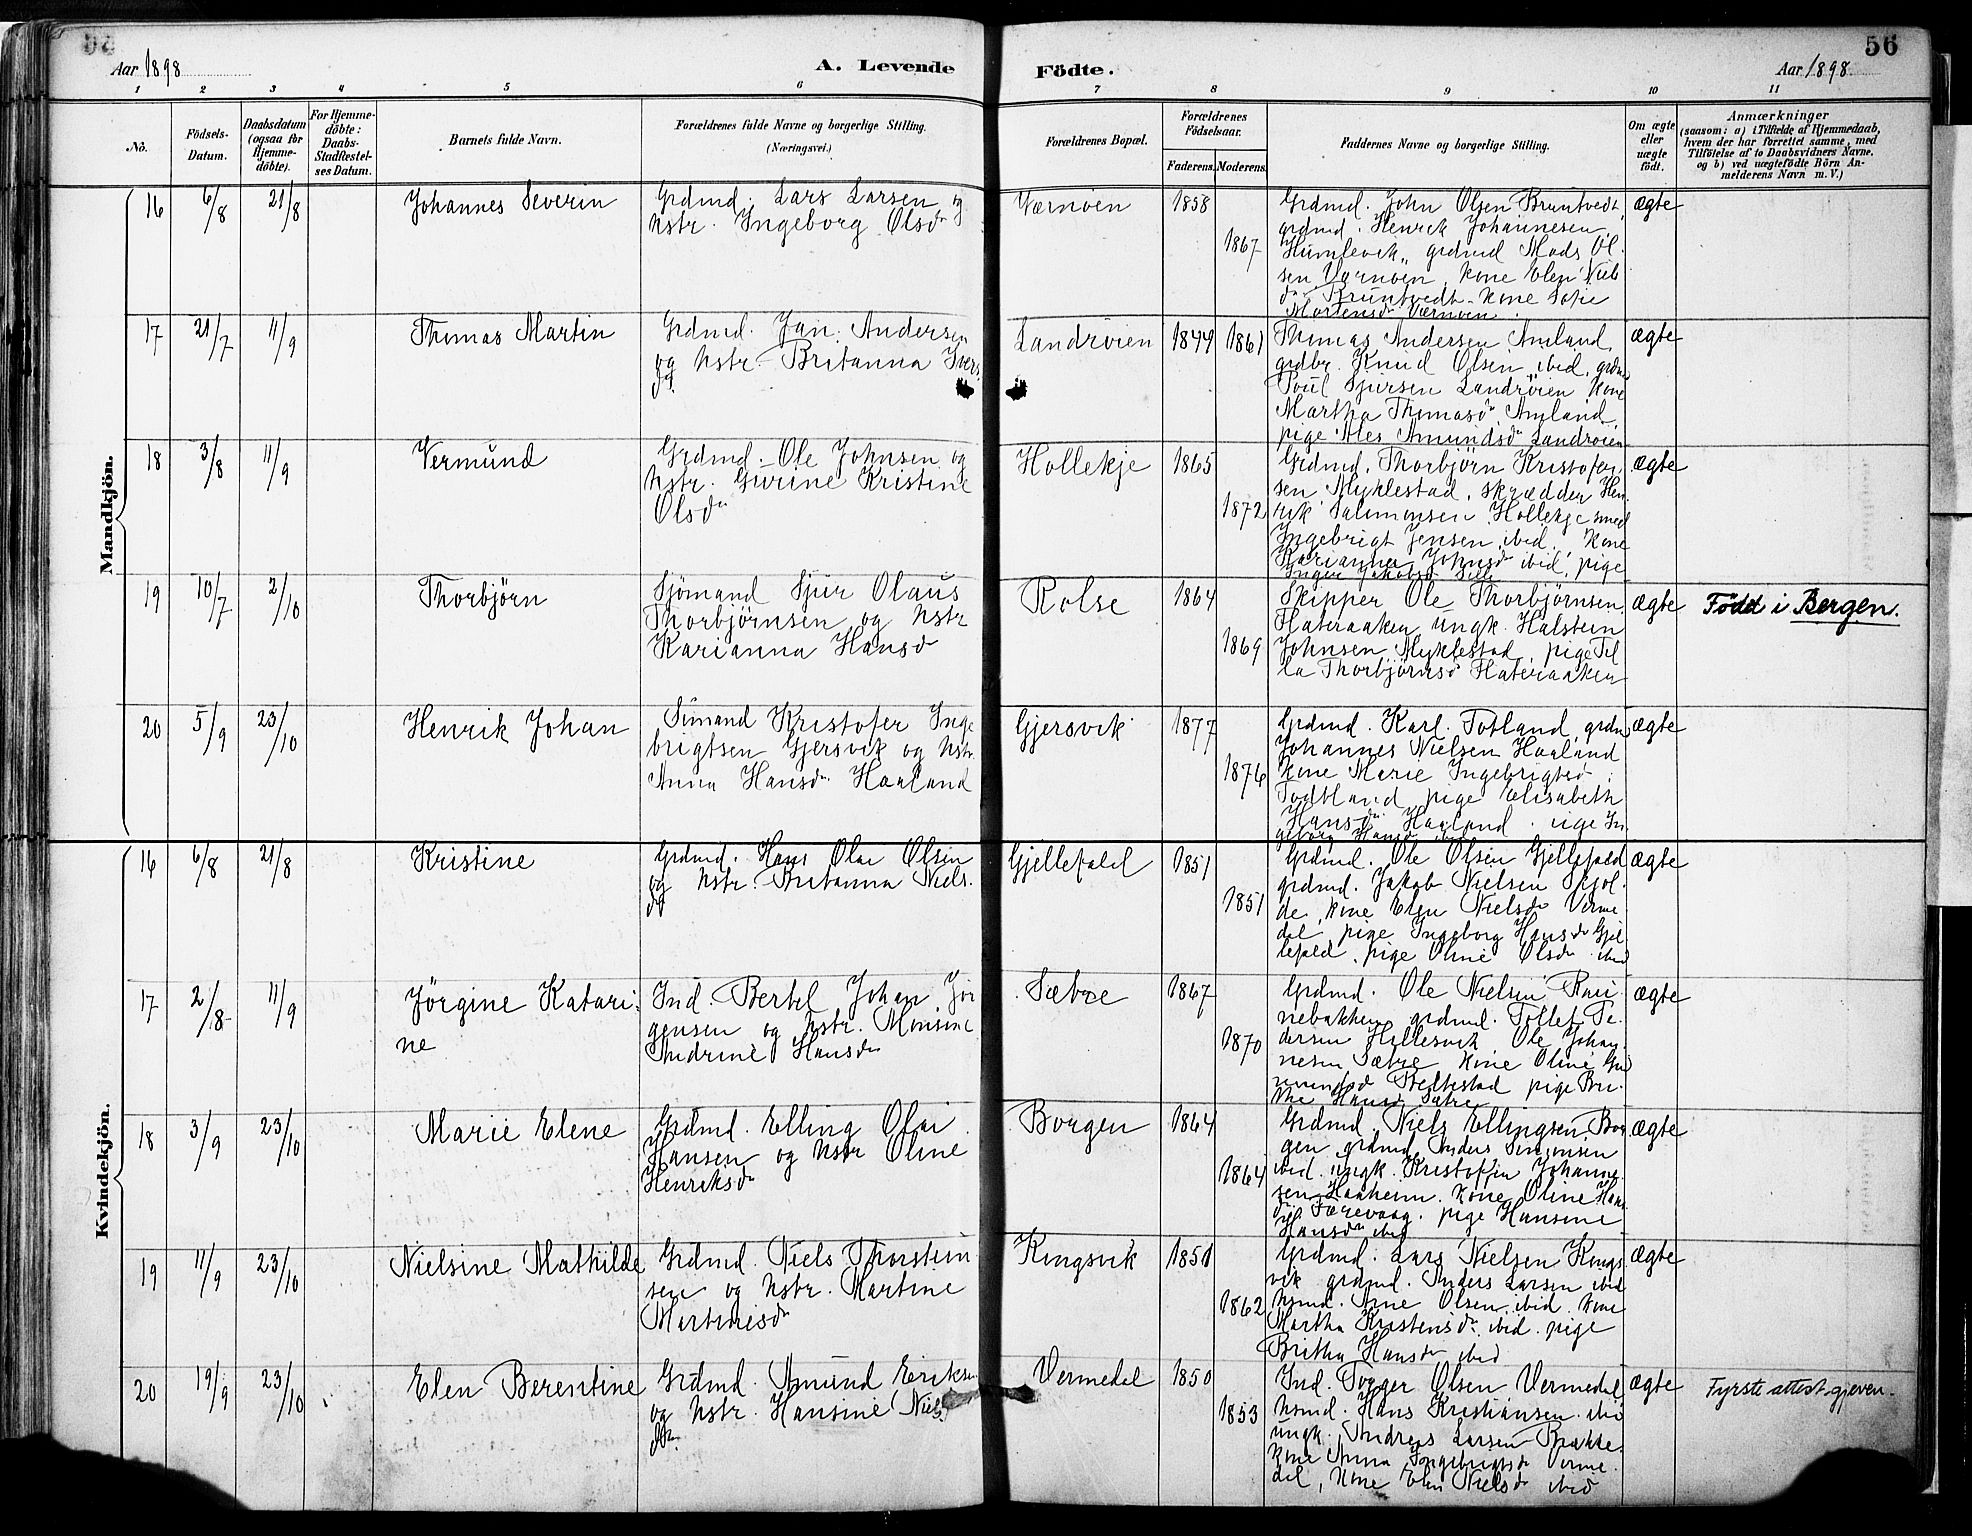 56
Aar 1898
A. Levende
Födte.
Aar 1898
1 2 3 4 5 6 7 8 9 10 11
No.
Födsels-
Datum.
Daabsdatum
(ogsaa for
Hjemme-
döbte).
For Hjemme-
döbte:
Daabs-
Stadfæstel-
ses Datum.
Barnets fulde Navn.
Forældrenes fulde Navne og borgerlige Stilling.
(Næringsvei.)
Forældrenes Bopæl.
Forældrenes
Födselsaar.
Faderens.
Moderens.
Faddernes Navne og borgerlige Stilling.
Om ægte
eller
uægte
födt.
Anmærkninger
(saasom: a) i Tilfælde af Hjemmedaab,
hvem der har forrettet samme, med
Tilföielse af to Daabsvidners Navne,
og b) ved uægtefödte Börn An-
melderens Navn m. V.)
Mandkjön.
16 6/8 21/8
Johannes Severin
Grdmd. Lars Larsen og
Kstr. Ingeborg Olsdr
Værnøen
1858
1867
Grdmd. John Olsen Bruntvedt,
grdmd. Henrik Johannesen
Humlevik, grdmd Mads Ol-
sen Værnøen, kone Elen Niels
dr Bruntvedt, kone Sofie
Mortensdr Værnøen.
ægte
17 21/7 11/9
Thomas Martin
Grdmd. Jan Andersen
og Kstr. Britanna Ivers
dr.
Landrøien
1844
1861
Thomas Andersen Amland,
grdbr. Knud Olsen ibid, grdmd
Poul Sjursen Landrøien kone
Martha Thomasdr Amland,
pige Ales Amundsdr Landrøien
ægte
18 3/8 11/9
Vermund
Grdmd. Ole Johnsen og
Kstr. Gurine Kristine
Olsdr
Hollekje
1865
1872
Grdmd. Thorbjørn Kristofer-
sen Myklestad, skrædder Hen
rik Salamonsen Hollekje smed
Ingebrigt Jensen ibid, kone
Karianna Johnsdr ibid, pige
Inger Jakobsd
ægte
19 10/7 2/10
Thorbjörn
Sjömand Sjur Olaus
Thorbjörnsen og Kstr
Karianna Hansd
Rolse
1864
1869
Skipper Ole Thorbjörnsen
Flateraaken ungk. Halstein
Johnsen Myklestad, pige Til
la Thorbjörnsd Flateraaken
ægte
Född i Bergen.
20 5/9 23/10
Henrik Johan
Sömand Kristofer Inge
brigtsen Gjersvik og Kstr.
Anna Hansdr Haaland
Gjersvik
1877
1876
Grdmd. Karl Totland, grdm
Johannes Nielsen Haaland
kone Marie Ingebrigtsd
Todtland, pige Elisabeth
Hansdr Haaland. pige In-
geborg Hansd ibid
ægte
Kvindekjön.
16 6/8 21/8
Kristine
Grdmd. Hans Olai Olsen
og Kstr. Britanna Niels-
dr
Gjellefald
1851
1851
Grdmd. Ole Olsen Gjellefald
grdmd. Jakob Nielsen Skjol-
de, kone Elen Nielsdr Verme
dal, pige Ingeborg Hansdr Gjel
lefald, pige Oline Olsdr ibid
ægte
17 2/8 11/9
Jörgine Katari-
ne
Ind. Bertel Johan Jør
gensen og Kstr. Monsine
Andrine Hansdr
Sætre
1867
1870
Grdmd. Ole Nielsen Kari-
nebakken grdmd. Tollef Pe-
dersen Hillesvik Ole Johan-
nesen Sætre kone Oline Gud
mundsd Beltestad pige Bri-
the Hansd Sætre
ægte
18 3/9 23/10
Marie Elene
Grdmd. Elling Olai
Hansen og Kstr Oline
Henriksdr
Borgen
1864
1864
Grdmd. Niels Ellingsen Bor
gen grdmd. Anders Simonsen
ibid. ungk. Kristoffer Johanne-
sen Haaheim. kone Oline Hans
dr Færevaag. pige Hansine
Hansdr ibid
ægte
19 11/9 23/10
Nielsine Mathilde
Grdmd. Niels Thorstein
sen og Kstr. Martine
Martinisdr
Kingsvik
1851
1862
Grdmd. Lars Nielsen Kings
vik grdmd. Anders Larsen ibid
Hsmd. Arne Olsen ibid. kone
Martha Kristensdr ibid. pige
Britha Hansdr ibid
ægte
20 19/9 23/10
Elen Berentine
Grdmd. Amund Eriksen
og Kstr. Hansine Niels
dr.
Vermedal
1850
1853
Ind. Torger Olsen Vermedal
hsmd. Hans Kristiansen ibid
ungk. Andreas Larsen Brakke
kone Anna Ingebrigtsdr Verme-
dal, kone Elen Nielsdr ibid
ægte
Fyrste attest gjeven.